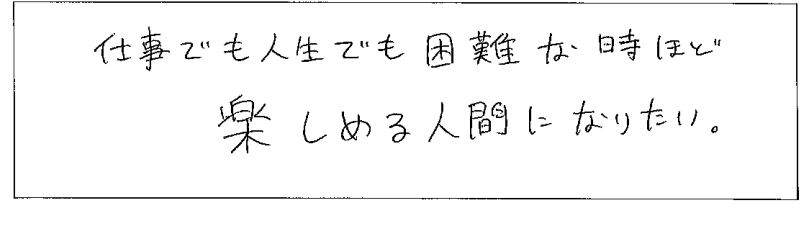 仕事でも人生でも困難な時ほど
楽しめる人間になりたい。